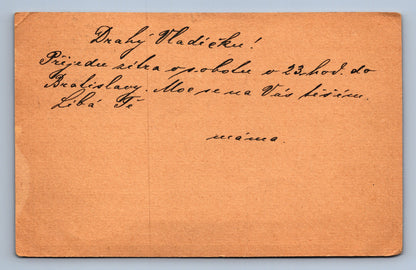 Drahý Vladíčku!
Přijedu zítra v sobotu o 23. hod. do
Bratislavy. Moc se na Vás těším.
Líbá Tě
máma.